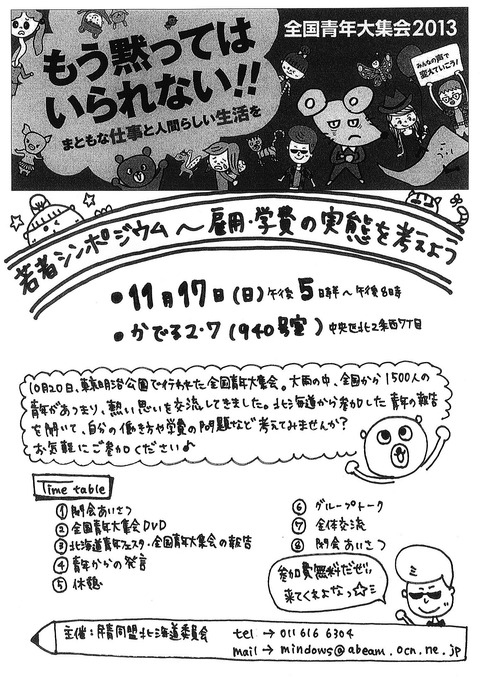 全国青年大集会2013
もう黙っては
いられない!!
まともな仕事と人間らしい生活を
みんなの声で
変えていこう!
若者シンポジウム〜雇用・学費の実態を考えよう
● 11月17日(日)午後5時半〜午後8時
● かでる2・7(940号室)中央区北2条西7丁目
10月20日、東京明治公園で行われた全国青年大集会。大雨の中、全国から1500人の
青年があつまり、熱い思いを交流してきました。北海道から参加した青年の報告
を聞いて、自分の働き方や学費の問題など考えてみませんか?
お気軽にご参加ください♪
Time table
① 開会あいさつ
② 全国青年大集会DVD
③ 北海道青年フェスタ・全国青年大集会の報告
④ 青年からの発言
⑤ 休憩
⑥ グループトーク
⑦ 全体交流
⑧ 閉会あいさつ
参加費無料だぜ!!
来てくれよなっ☆ミ
主催:民青同盟北海道委員会
tel → 011 616 6304
mail → mindows@abeam.ocn.ne.jp